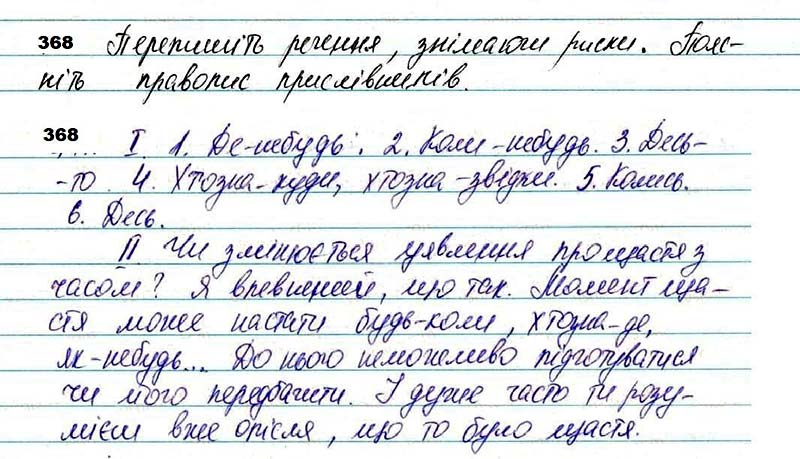 368 Перепишіть речення, знімаючи риски. Пояс-
ніть правопис прислівників.
368
I 1. Де-небудь. 2. Коли-небудь. 3. Десь-
-то 4. Хтозна-куди, хтозна-звідки. 5. Колись.
6. Десь.
II Чи змінюється уявлення про щастя з
часом? Я впевнений, що так. Момент ща-
стя може настати будь-коли, хтозна-де,
як-небудь... До нього неможливо підготуватися
чи його передбачити. І дуже часто ти розу-
мієш вже опісля, що то було щастя.